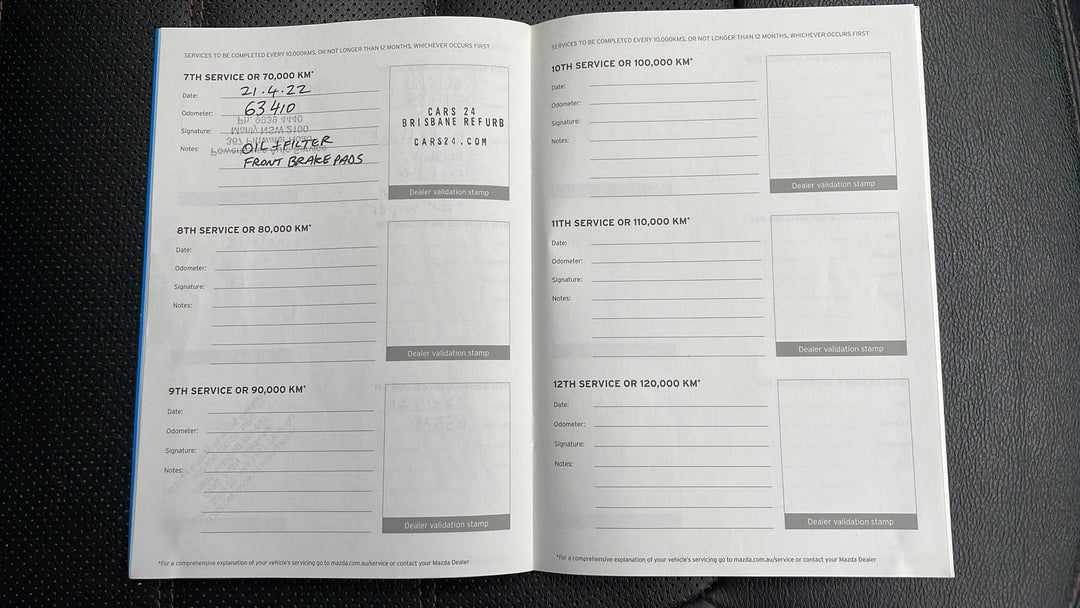 SERVICES TO BE COMPLETED EVERY 10,000KMS, OR NOT LONGER THAN 12 MONTHS, WHICHEVER OCCURS FIRST
7TH SERVICE OR 70,000 KM*
Date: 21.4.22
Odometer: 63410
Ph. 9939 4440
Signature:
Manly NSW 2100
367 Pittwater Road
Notes: OIL + FILTER
FRONT BRAKE PADS
CARS 24
BRISBANE REFURB
CARS24.COM
Dealer validation stamp
8TH SERVICE OR 80,000 KM*
Date:
Odometer:
Signature:
Notes:
Dealer validation stamp
9TH SERVICE OR 90,000 KM*
Date:
Odometer:
Signature:
Notes:
Dealer validation stamp
*For a comprehensive explanation of your vehicle's servicing go to mazda.com.au/service or contact your Mazda Dealer
SERVICES TO BE COMPLETED EVERY 10,000KMS, OR NOT LONGER THAN 12 MONTHS, WHICHEVER OCCURS FIRST
10TH SERVICE OR 100,000 KM*
Date:
Odometer:
Signature:
Notes:
Dealer validation stamp
11TH SERVICE OR 110,000 KM*
Date:
Odometer:
Signature:
Notes:
Dealer validation stamp
12TH SERVICE OR 120,000 KM*
Date:
Odometer:
Signature:
Notes:
Dealer validation stamp
*For a comprehensive explanation of your vehicle's servicing go to mazda.com.au/service or contact your Mazda Dealer